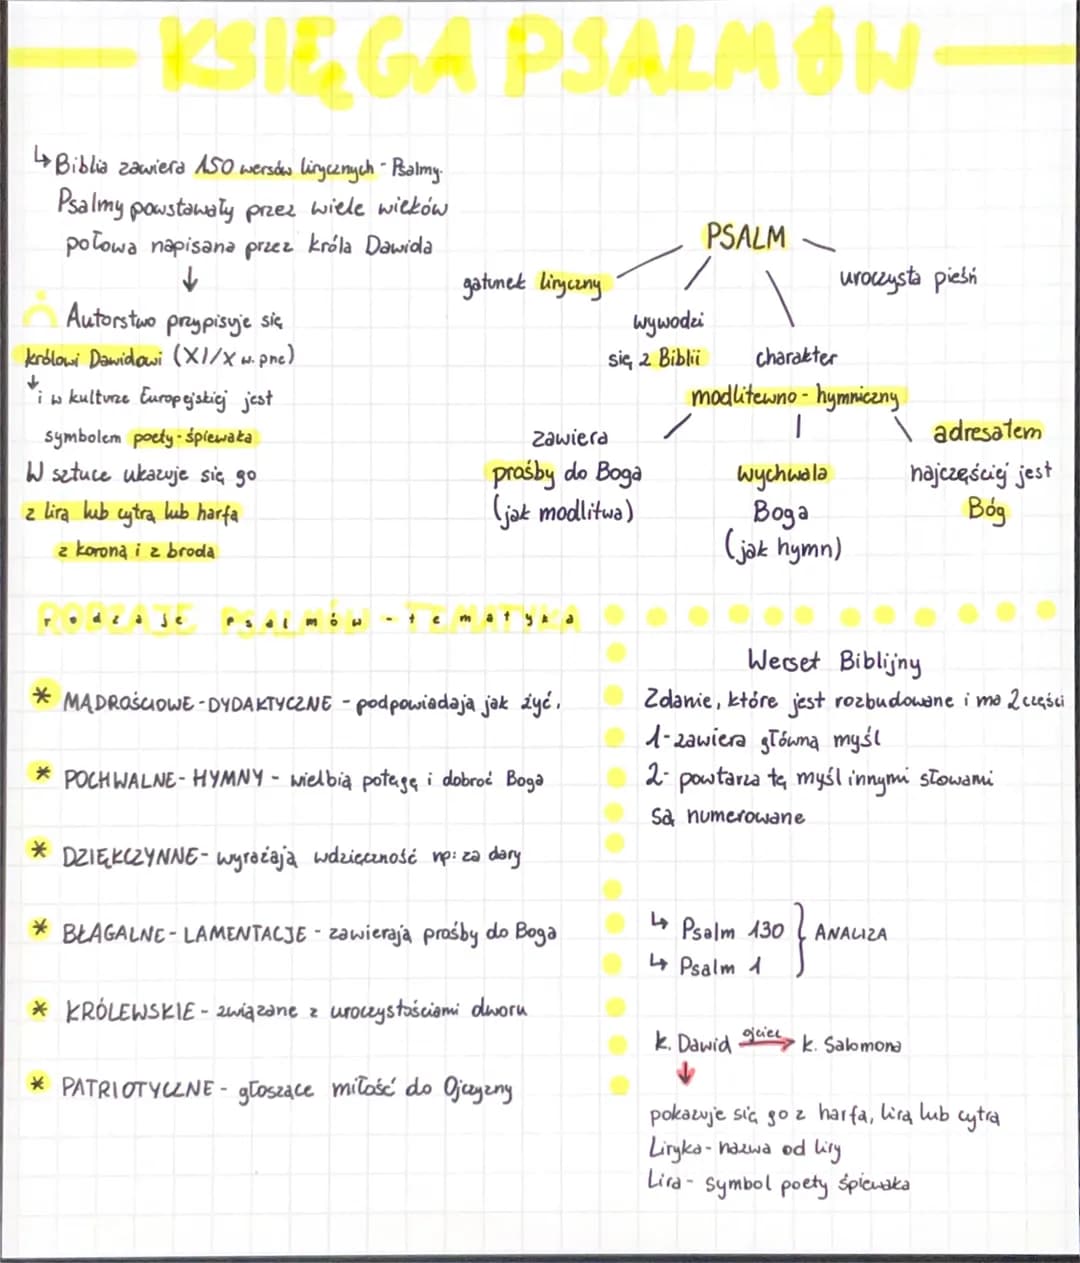 KSIĘGA PSALMÓW
↳ Biblia zawiera 150 wersów lirycznych - Psalmy.
Psalmy powstawały przez wiele wieków
połowa napisana przez króla Dawida
↓
Autorstwo przypisuje się
królowi Dawidowi (XI/X w. pne)
↓ i w kulturze Europejskiej jest
symbolem poety - śpiewaka
W sztuce ukazuje się go
z lirą lub cytrą lub harfą
z koroną i z brodą
PSALM
gatunek liryczny
wywodzi
się z Biblii
charakter
modlitewno - hymniczny
uroczysta pieśń
zawiera
prośby do Boga
(jak modlitwa)
wychwala
Boga
(jak hymn)
adresatem
najczęściej jest
Bóg
rodzaje psalmów - tematyka
* MĄDROŚCIOWE - DYDAKTYCZNE - podpowiadają jak żyć.
* POCHWALNE - HYMNY - wielbią potęgę i dobroć Boga
* DZIĘKCZYNNE - wyrażają wdzięczność np: za dary
* BŁAGALNE - LAMENTACJE - zawierają prośby do Boga
* KRÓLEWSKIE - związane z uroczystościami dworu
* PATRIOTYCZNE - głoszące miłość do Ojczyzny
Werset Biblijny
Zdanie, które jest rozbudowane i ma 2 części
1 - zawiera główną myśl
2 - powtarza tę myśl innymi słowami
są numerowane
↳ Psalm 130 } ANALIZA
↳ Psalm 1
k. Dawid ojciec → k. Salomona
↓
pokazuje się go z harfą, lirą lub cytrą
Liryka - nazwa od liry
Lira - symbol poety śpiewaka